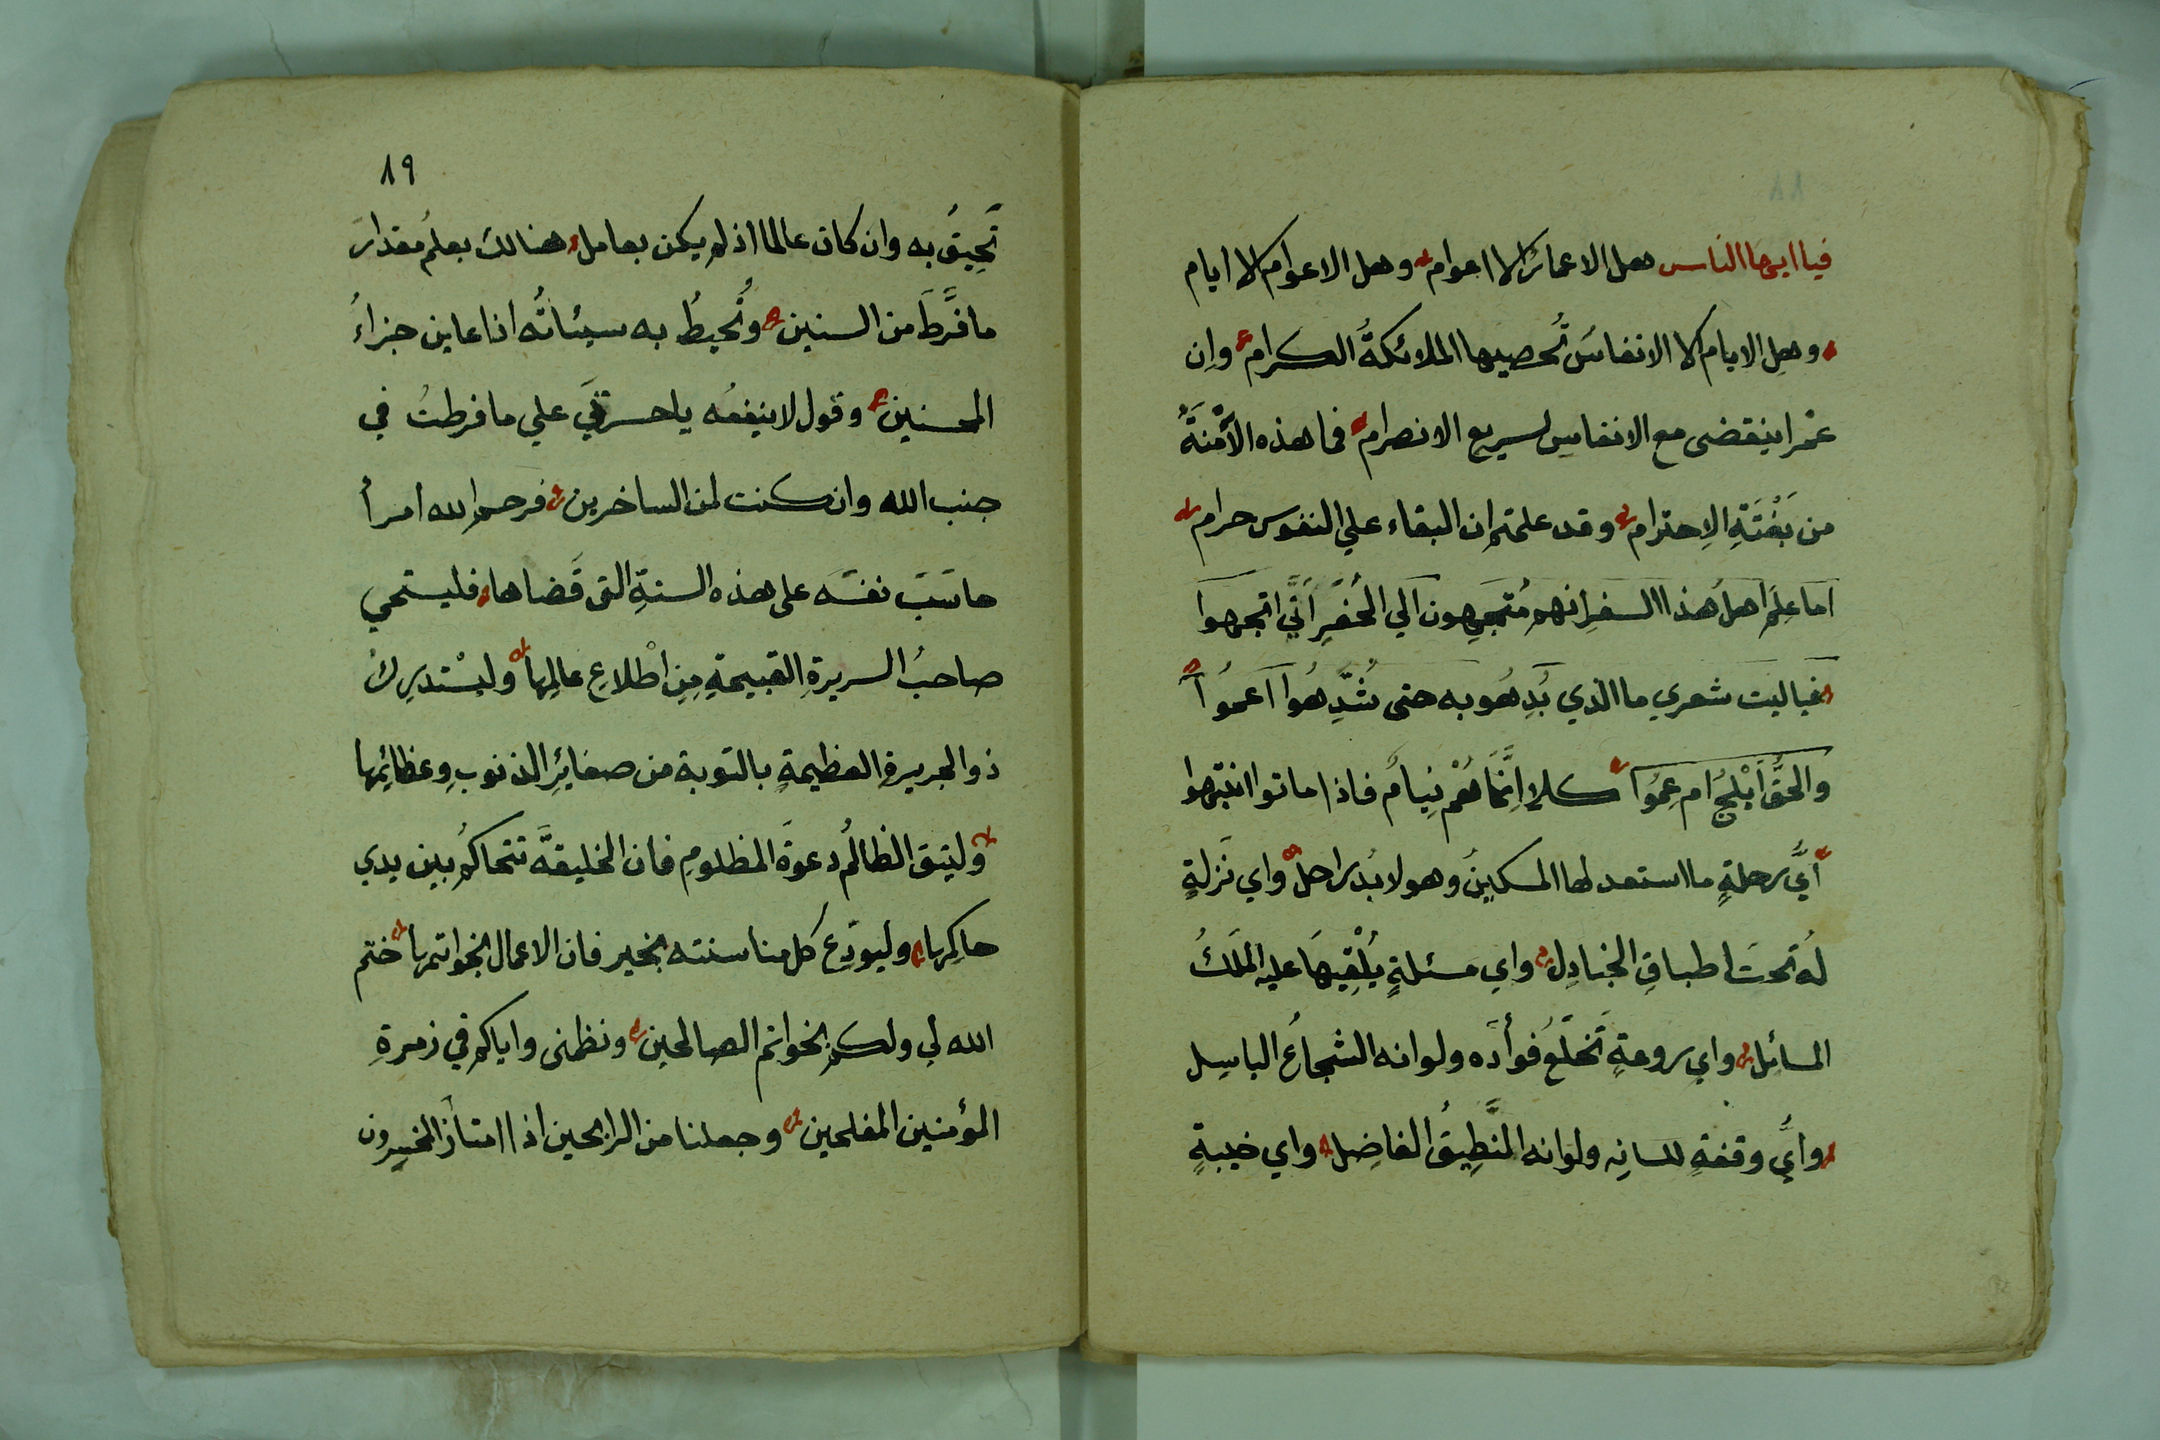 ٨٨
فيا ايها الناس هل الاعمار الا اعوام وهل الاعوام الا ايام
وهل الايام الا الانفاسُ تُحصيها الملائكةُ الكرام وان
عمرا ينقضى مع الانفاسِ لسريع الانصرام فما هذه الاَمَنَةُ
من بَغْتَةِ الاِخترام وقد علمتم ان البقاء علي النفوس حرام
اما عَلِمَ اهلُ هذا السفرِ انهم مُتَجِهون الي الحُفَرِ اَنَّي اتجهوا
فياليت شعري ما الذي بُدِهُوبه حتى شُدِهُوا اَعموُا
والحَقُّ اَبْلَجُ ام عمُوا كلا اِنَّمَا هُمْ نِيامٌ فاذا ماتوا انتبهوا
أيُّ رحلةٍ ما استعد لها المسكينُ وهو لا بُد راحلٌ واي نَزلةٍ
لَهُ تحتَ اطباقِ الجنادِل واي مسئلةٍ يُلْقِيهَا عليه المَلَكُ
السائل واي روعةٍ تَخلَّعُ فوأدَه ولوانه الشجاعُ الباسِل
وايُّ وقفةٍ للسانِه ولوانه المنَّطِيقُ الفاضِل واي خيبةٍ
٨٩
تَحِيقُ به وان كان عالما اذ لم يكن بعامل هنالك يعلمُ مقدارَ
ما فرَّطَ من السنين وتُحيطُ به سيئاتُه اذا عاين جزاءُ
المحسنين وقول لا ينفعُه ياحسرتَي علي ما فرطتُ في
جنب الله وان كنت لمن الساخرين فرحم الله امرأ
حاسَبَ نفسَه على هذه السنةِ التي قَضاها فليستحي
صاحبُ السريرةِ القبيحةِ مِن اطْلاعِ عالِمِها وليسْتدرِكُ
ذوالجريرةِ العظيمةِ بالتوبة من صغايِرِ الذنوبِ وعظائِمِها
وليتق الظالُم دعوةَ المظلومِ فان الخليقةَ تتحاكُم بين يدي
حاكِمِها وليودِّع كل منا سنته بخير فان الاعمال بخواتمها ختم
الله لي ولكم بخواتم الصالحين ونظمنى واياكم في زمرةِ
المؤمنين المفلحين وجعلنا من الرابحين اذا امتأز المخيرون